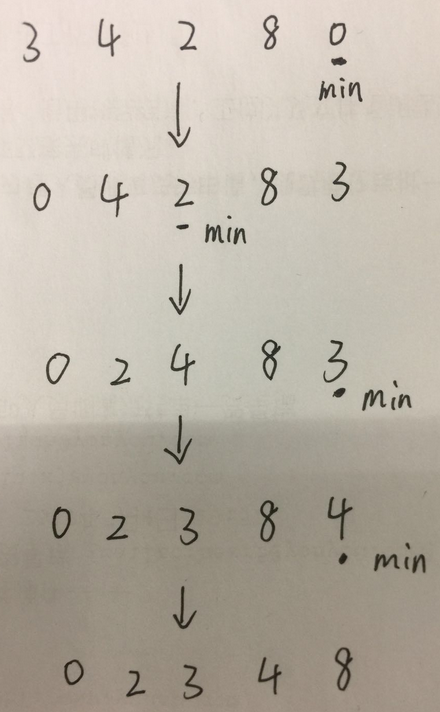 3 4 2 8 0
min
↓
0 4 2 8 3
min
↓
0 2 4 8 3
min
↓
0 2 3 8 4
min
↓
0 2 3 4 8